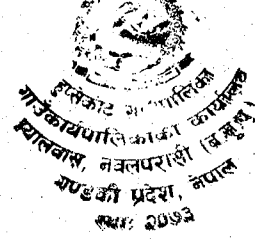 हुप्सेकोट गाउँपालिका
गाउँकार्यपालिकाको कार्यालय
ध्यालवास, नवलपरासी (ब.सु.पू.)
गण्डकी प्रदेश, नेपाल
स्था: २०७३